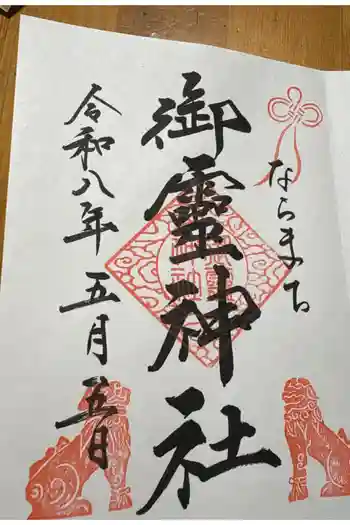 ならまち
御霊神社
令和八年五月五日